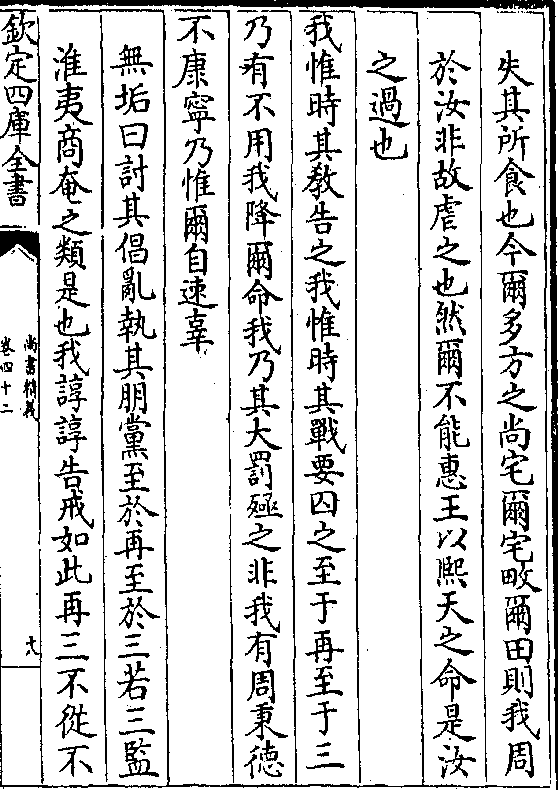 失其所食也今爾多方之尚宅爾宅畋爾田則我周
於汝非故虐之也然爾不能惠王以熈天之命是汝
之過也
我惟時其教告之我惟時其戰要囚之至于再至于三
乃有不用我降爾命我乃其大罰殛之非我有周秉德
不康寧乃惟爾自速辜
無垢曰討其倡亂執其朋黨至於再至於三若三監
淮夷商奄之類是也我諄諄告戒如此再三不從不
欽定四庫全書
尚書精義
卷四十二
十八